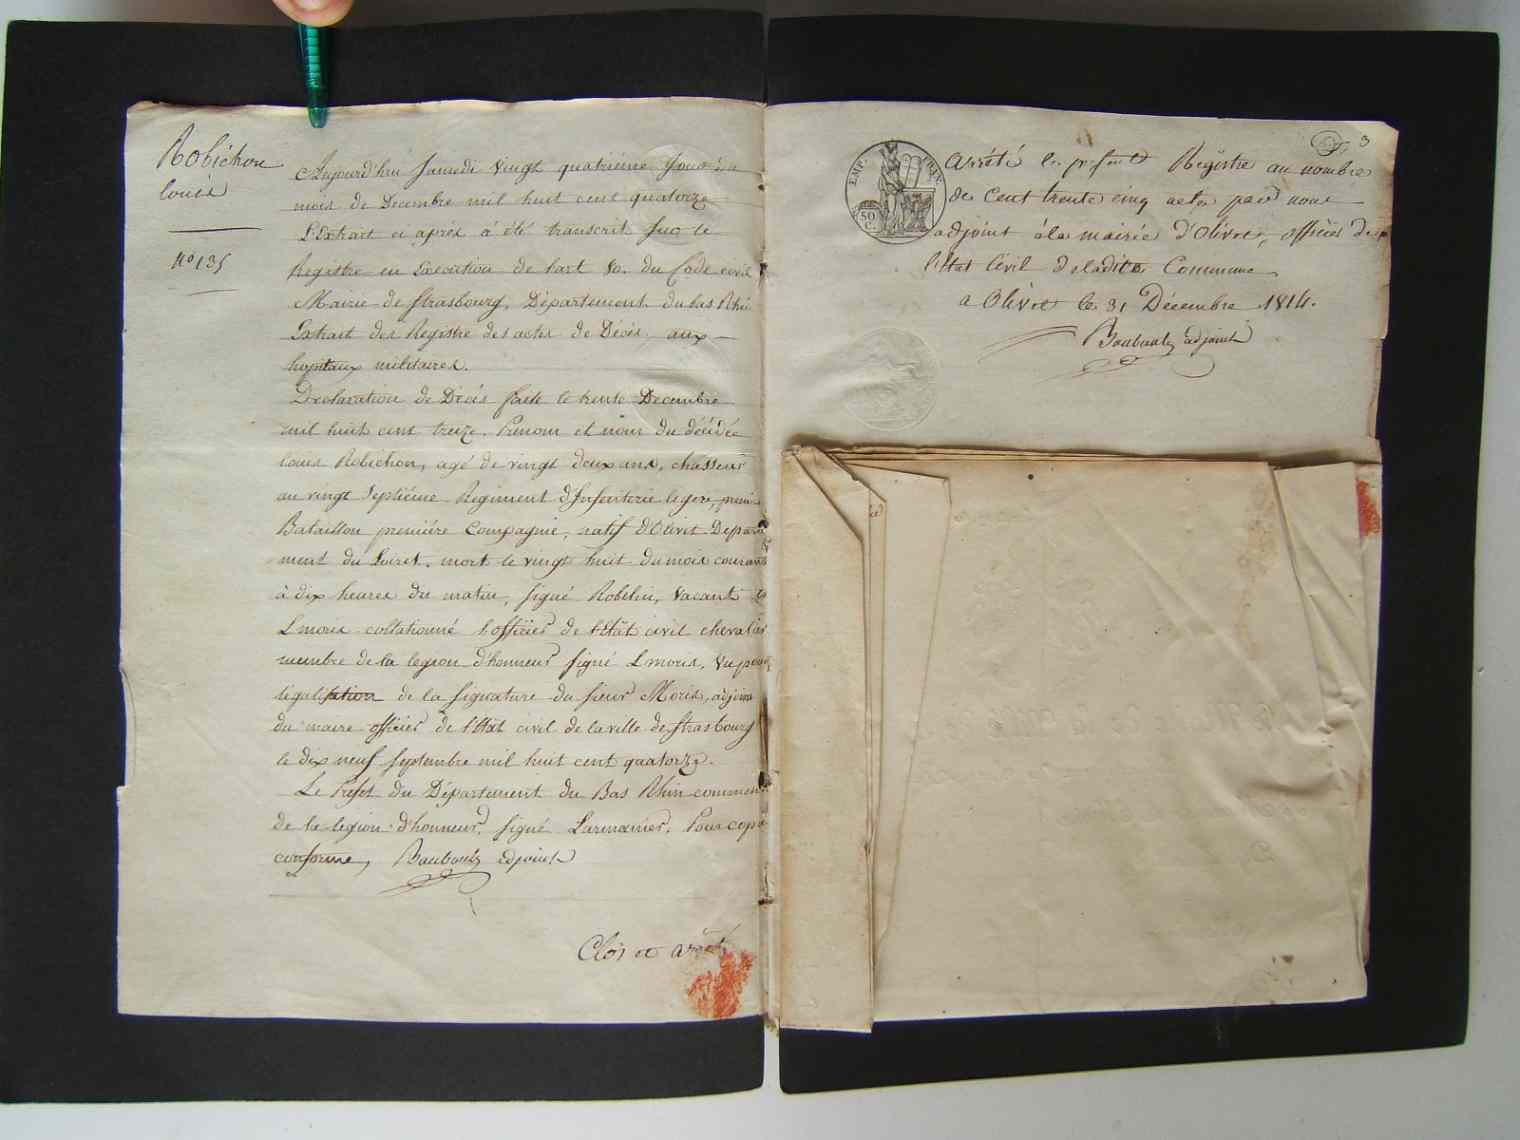 Robichon
louis
N° 135
Aujourd'hui Samedi vingt quatrieme Jour du
mois de Decembre mil huit cent quatorze
L'Extrait ci après à été transcrit sur le
Registre en Execution de l'art 80. du Code civil
Mairie de Strasbourg, Département du bas Rhin
Extrait des Registre des actes de Décès, aux
hopitaux militaires.
Declaration de Décés faite le trente Decembre
mil huit cent treize. Prenom et nom du décédé
louis Robichon, agé de vingt deux ans, chasseur
au vingt Septiéme Regiment d'Infanterie legere, premier
Bataillon première Compagnie, natif d'Olivet Departe
ment du Loiret. mort le vingt huit du mois courant
à dix heures du matin, signé Robelin, Vacant et
Lmoris collationné l'officier de l'Etat civil chevalier
membre de la legion d'honneur signé Lmoris, Vu pour
légalisation de la signature du sieur Moris, adjoint
du maire officier de l'Etat civil de la ville de Strasbourg
le dix neuf Septembre mil huit cent quatorze.
Le Prefet du Département du Bas Rhin comment
de la legion d'honneur, signé Larmanier, Pour copie
conforme, Baubault adjoint
Clos et arrêté
3
EMP.
50
C.
arrété le présent Régistre au nombre
de Cent trente cinq actes par nous
adjoint à la mairie d'Olivet, officier de
l'état Civil de ladite Commune
a Olivet le 31 Décembre 1814.
Baubault adjoint